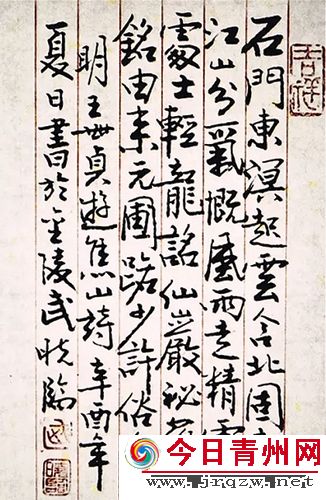 吉祥
石門東溟起雲含北固
江山分氣概風雨走精
處士輕龍詔仙巖秘
銘由来元圃踞少許俗
明王世貞遊焦山詩辛酉年
夏日書於金陵武曉臨
今日青州网
www.jrqzw.net